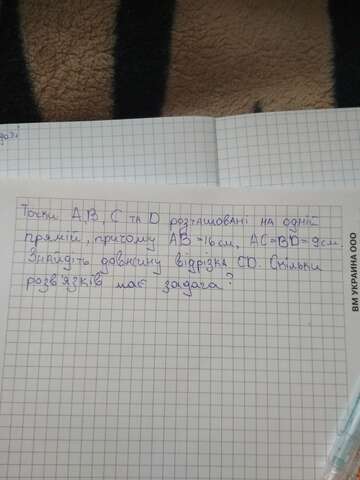 Точки A,B, C та D розташовані на одній
прямій, причому AB=16см, AC=BD=9см.
Знайдіть довжину відрізка CD. Скільки
розв'язків має задача?
ВМ УКРАИНА ООО